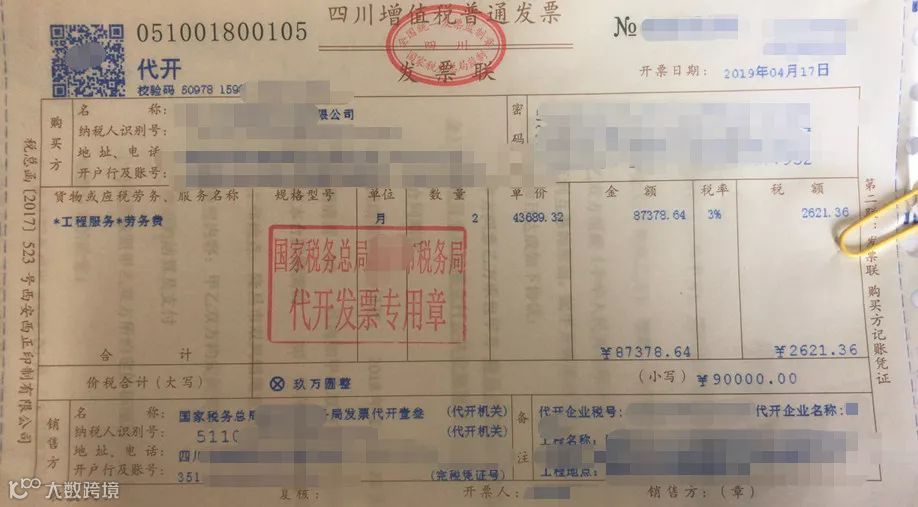 051001800105
四川增值税普通发票
№
代开
校验码 50978 159
全国统一发票监制章
四川
国家税务总局监制
发票联
开票日期： 2019年04月17日
购买方
名　　称： 限公司
纳税人识别号：
地 址、电 话：
开户行及账号：
密
码
货物或应税劳务、服务名称 规格型号 单位 数量 单价 金额 税率 税额
*工程服务*劳务费 月 2 43689.32 87378.64 3% 2621.36
国家税务总局 税务局
代开发票专用章
合　　计 ￥87378.64 ￥2621.36
价税合计（大写） ⊗ 玖万圆整 （小写） ￥90000.00
销售方
名　　称： 国家税务总局 务局发票代开壹叁 （代开机关）
纳税人识别号： 5110 （代开机关）
地 址、电 话： 四川
开户行及账号： 351 （完税凭证号）
备注
代开企业税号： 代开企业名称：
工程名称：
工程地点：
复核： 开票人： 销售方：（章）
税总函〔2017〕523号西安西正印制有限公司
第二联：发票联 购买方记账凭证
大数跨境